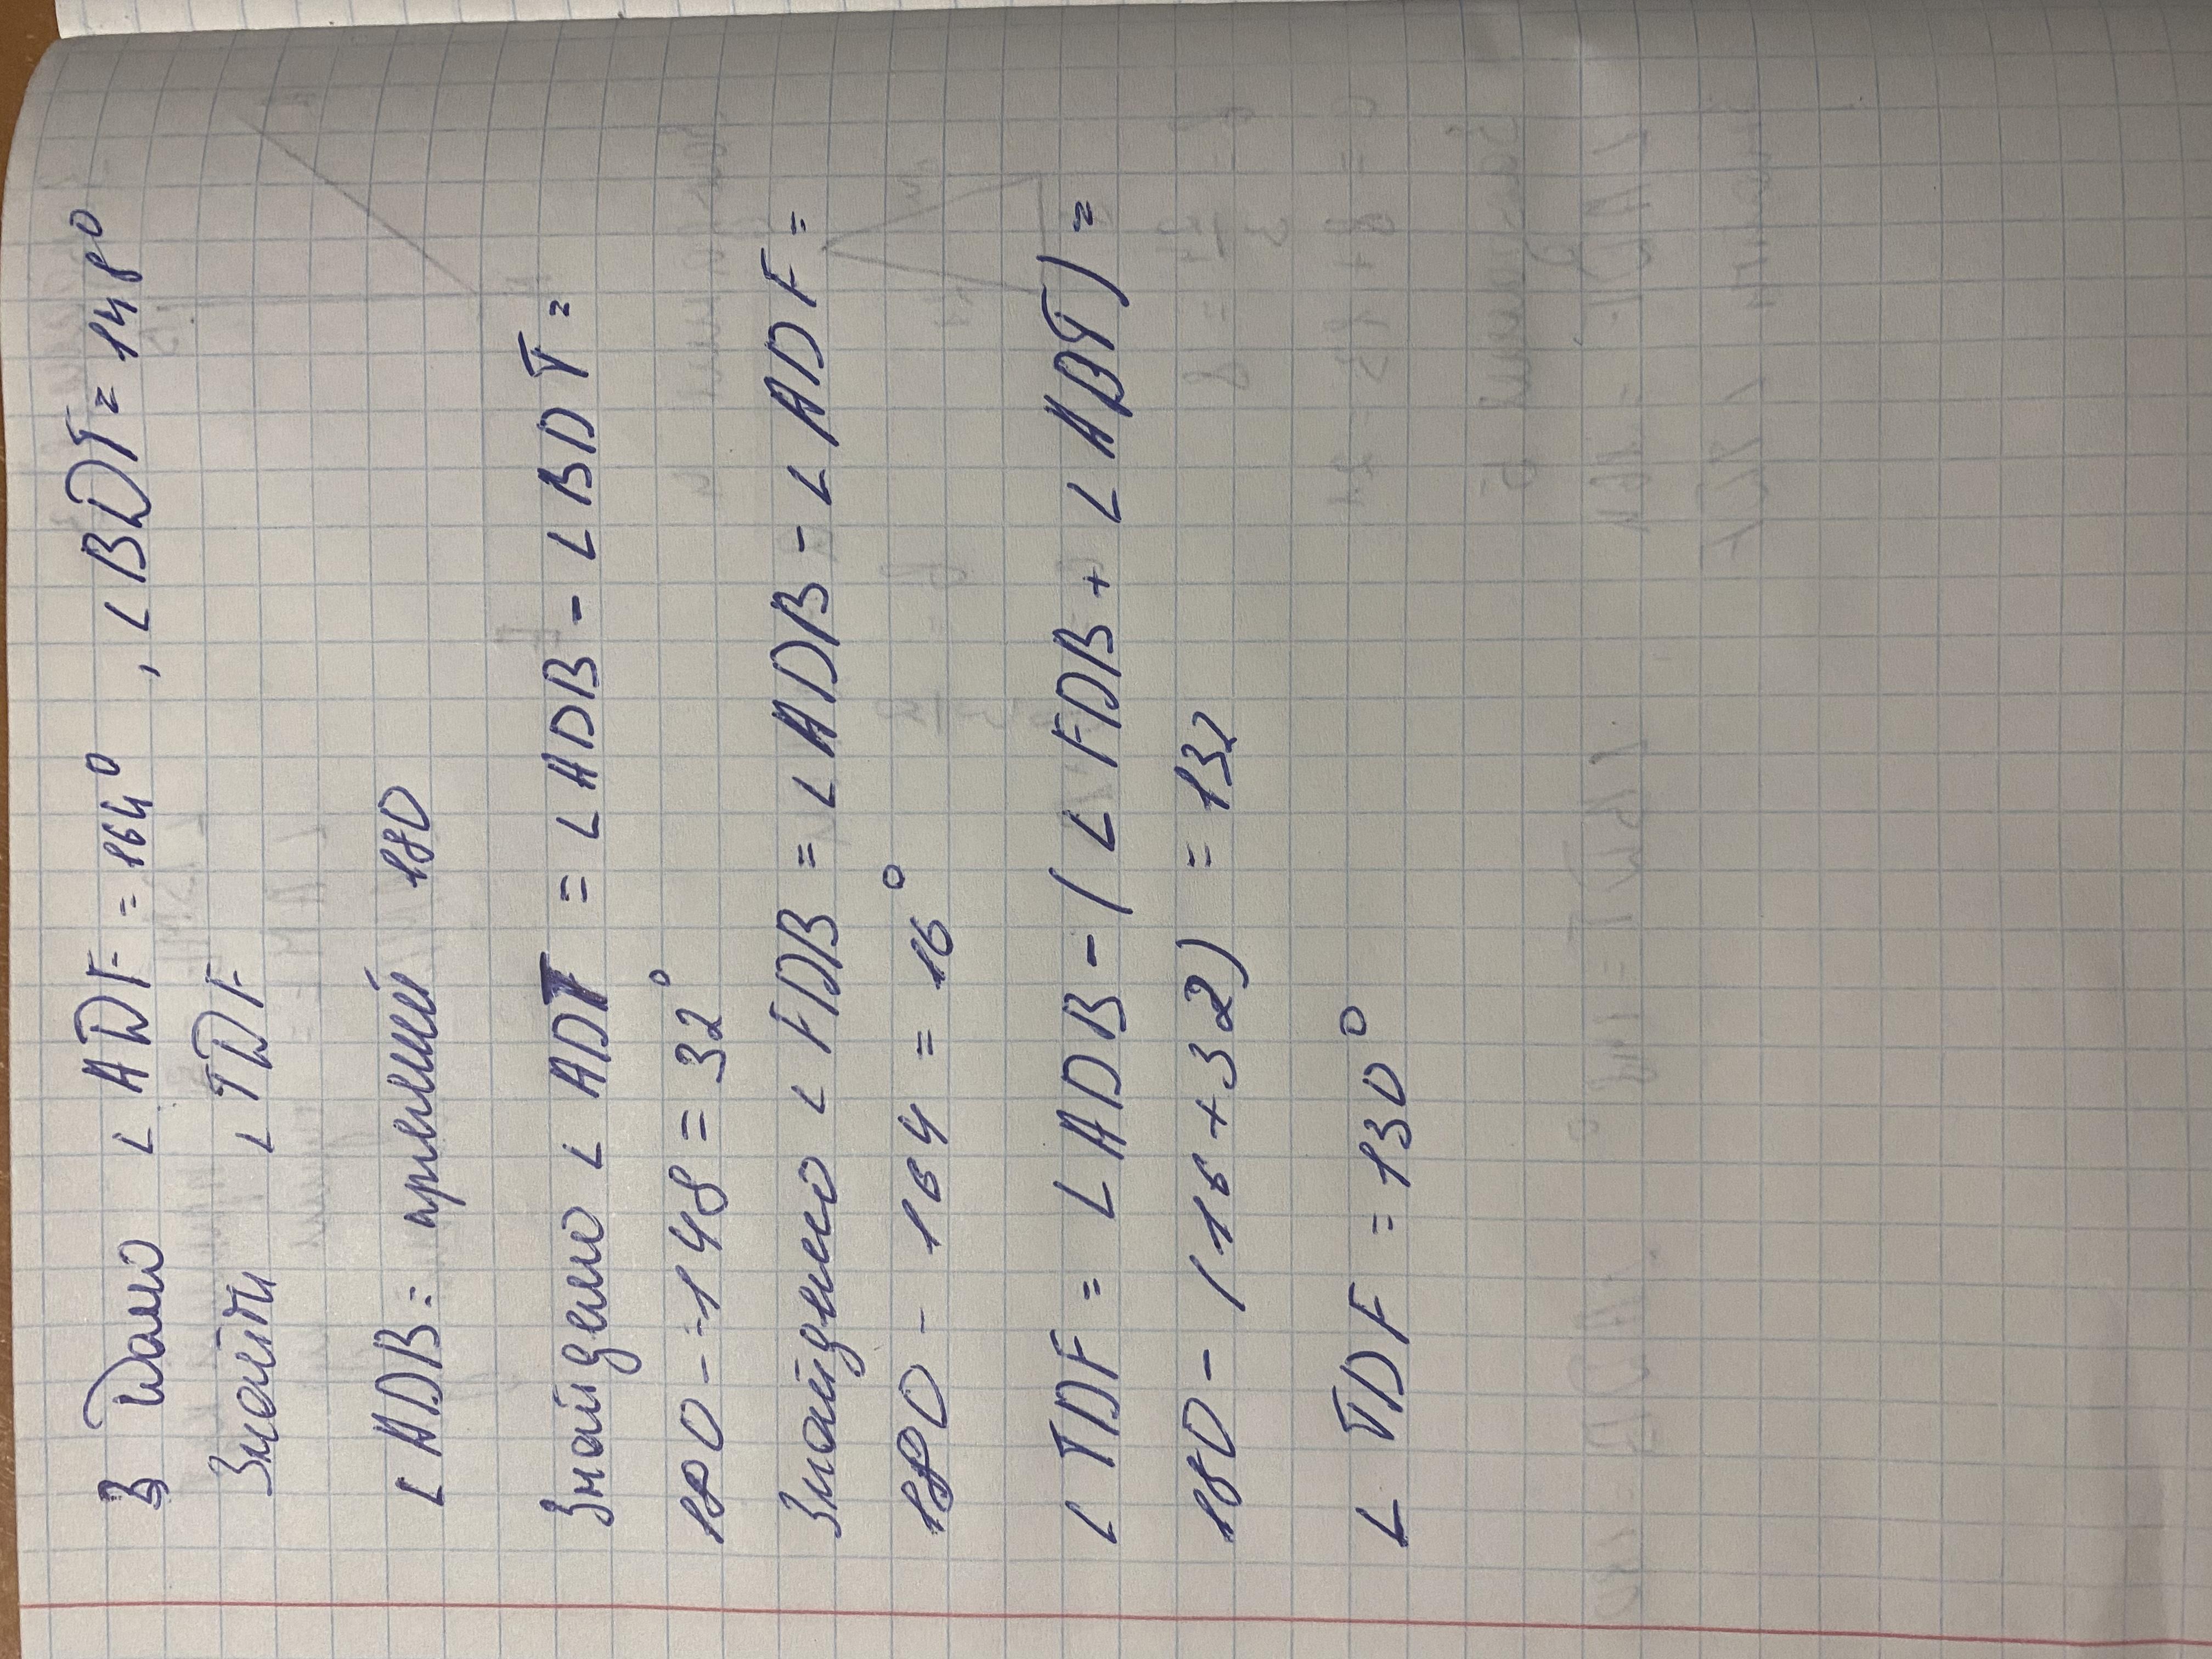 3 Дано ∠ ADF = 164⁰, ∠BDT = 148⁰
Знайти ∠ TDF
∠ ADB = прямий 180
Знайдемо ∠ ADT = ∠ADB - ∠BDT =
180 - 148 = 32⁰
Знайдемо ∠ FDB = ∠ ADB - ∠ ADF =
180 - 164 = 16⁰
∠ TDF = ∠ ADB - (∠ FDB + ∠ ABT) =
180 - (16 + 32) = 132
∠ TDF = 130⁰